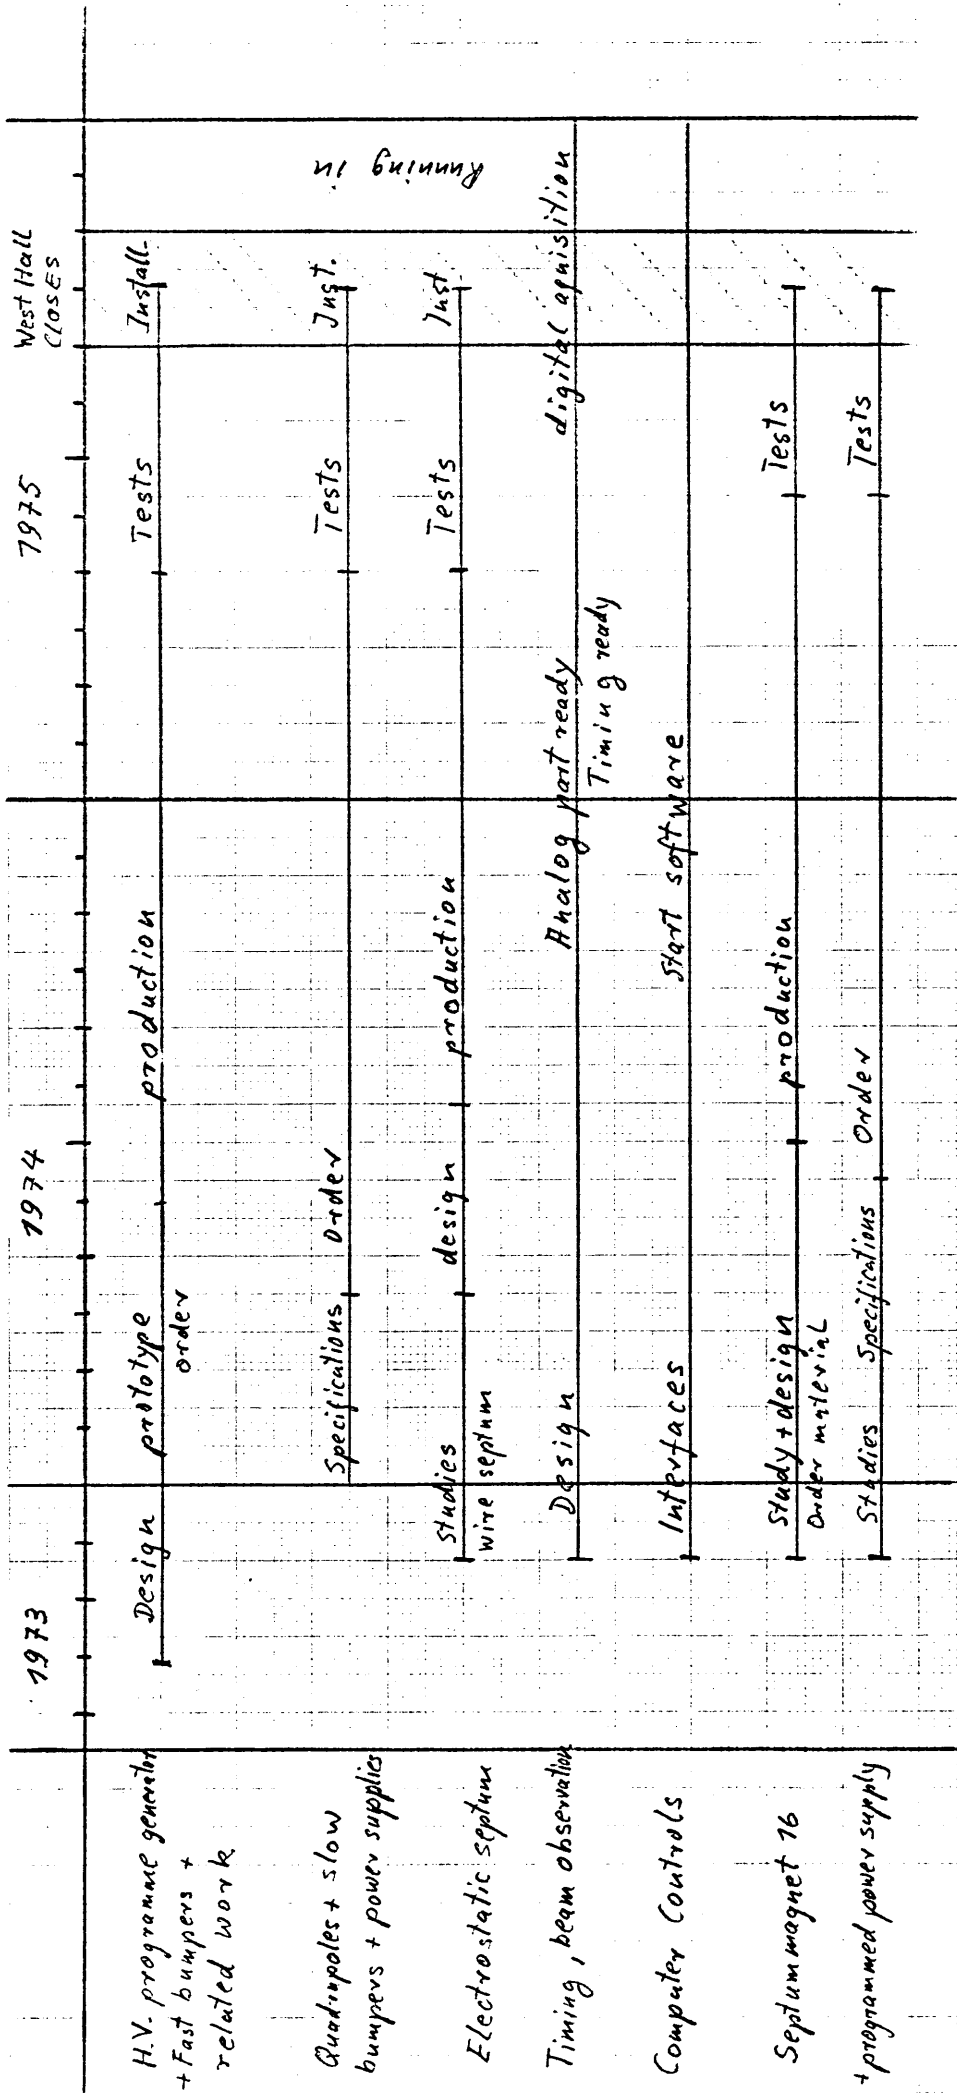 1973
1974
1975
West Hall
CLOSES
H.V. programme generator
+ Fast bumpers +
related work
Design
prototype
order
production
Tests
Install.
Quadrupoles + slow
bumpers + power supplies
Specifications
Order
Tests
Inst.
Electrostatic septum
studies
wire septum
design
production
Tests
Inst
Running in
Timing, beam observation
Design
Analog part ready
Timing ready
digital aquisition
Computer Controls
Interfaces
Start software
Septum magnet 16
Study + design
Order material
production
Tests
+ programmed power supply
Studies
Specifications
Order
Tests